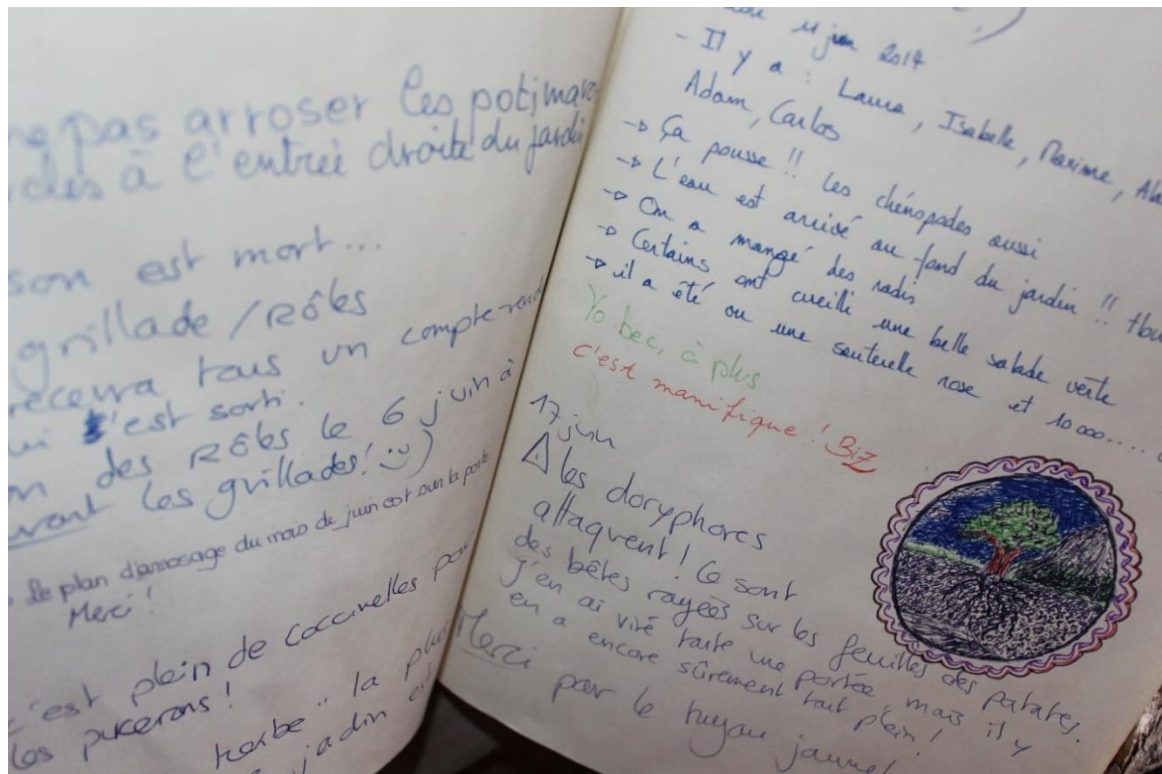 pas arroser les potimar
à l'entrée droite du jardin
son est mort...
grillade / RÔles
recevra tous un compte-rend
s'est sorti.
des RÔles le 6 juin à
avant les grillades! :)
le plan d'arrosage du mois de juin est sur la porte
Merci !
c'est plein de coccinelles pour
les pucerons !
herbe" la plus
jadin est
11 juin 2014
- Il y a : Laura, Isabelle, Maxime,
Adam, Carlos
-> Ça pousse !! les chénopodes aussi
-> L'eau est arrivé au fond du jardin !!
-> On a mangé des radis
-> Certains ont cueilli une belle salade verte
-> il a été vu une sauterelle rose et 10 000....
Yo bec, à plus
c'est manifique ! BiZ
17 juin
⚠ les doryphores
attaquent ! Ce sont
des bêtes rayées sur les feuilles des patates.
J'en ai viré toute une portée, mais il y
en a encore sûrement tout plein !
Merci pour le tuyau jaune!